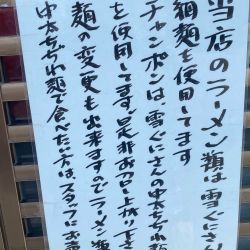 当店のラーメン類は雪ぐにさん
細麺を使用してます
チャンポンは、雪ぐにさんの中太ちぢれ麺
を使用してます。是非お召し上がり下さ
麺の変更も出来ますのでラーメン類
中太ちぢれ麺で食べたい方は、スタッフにお声